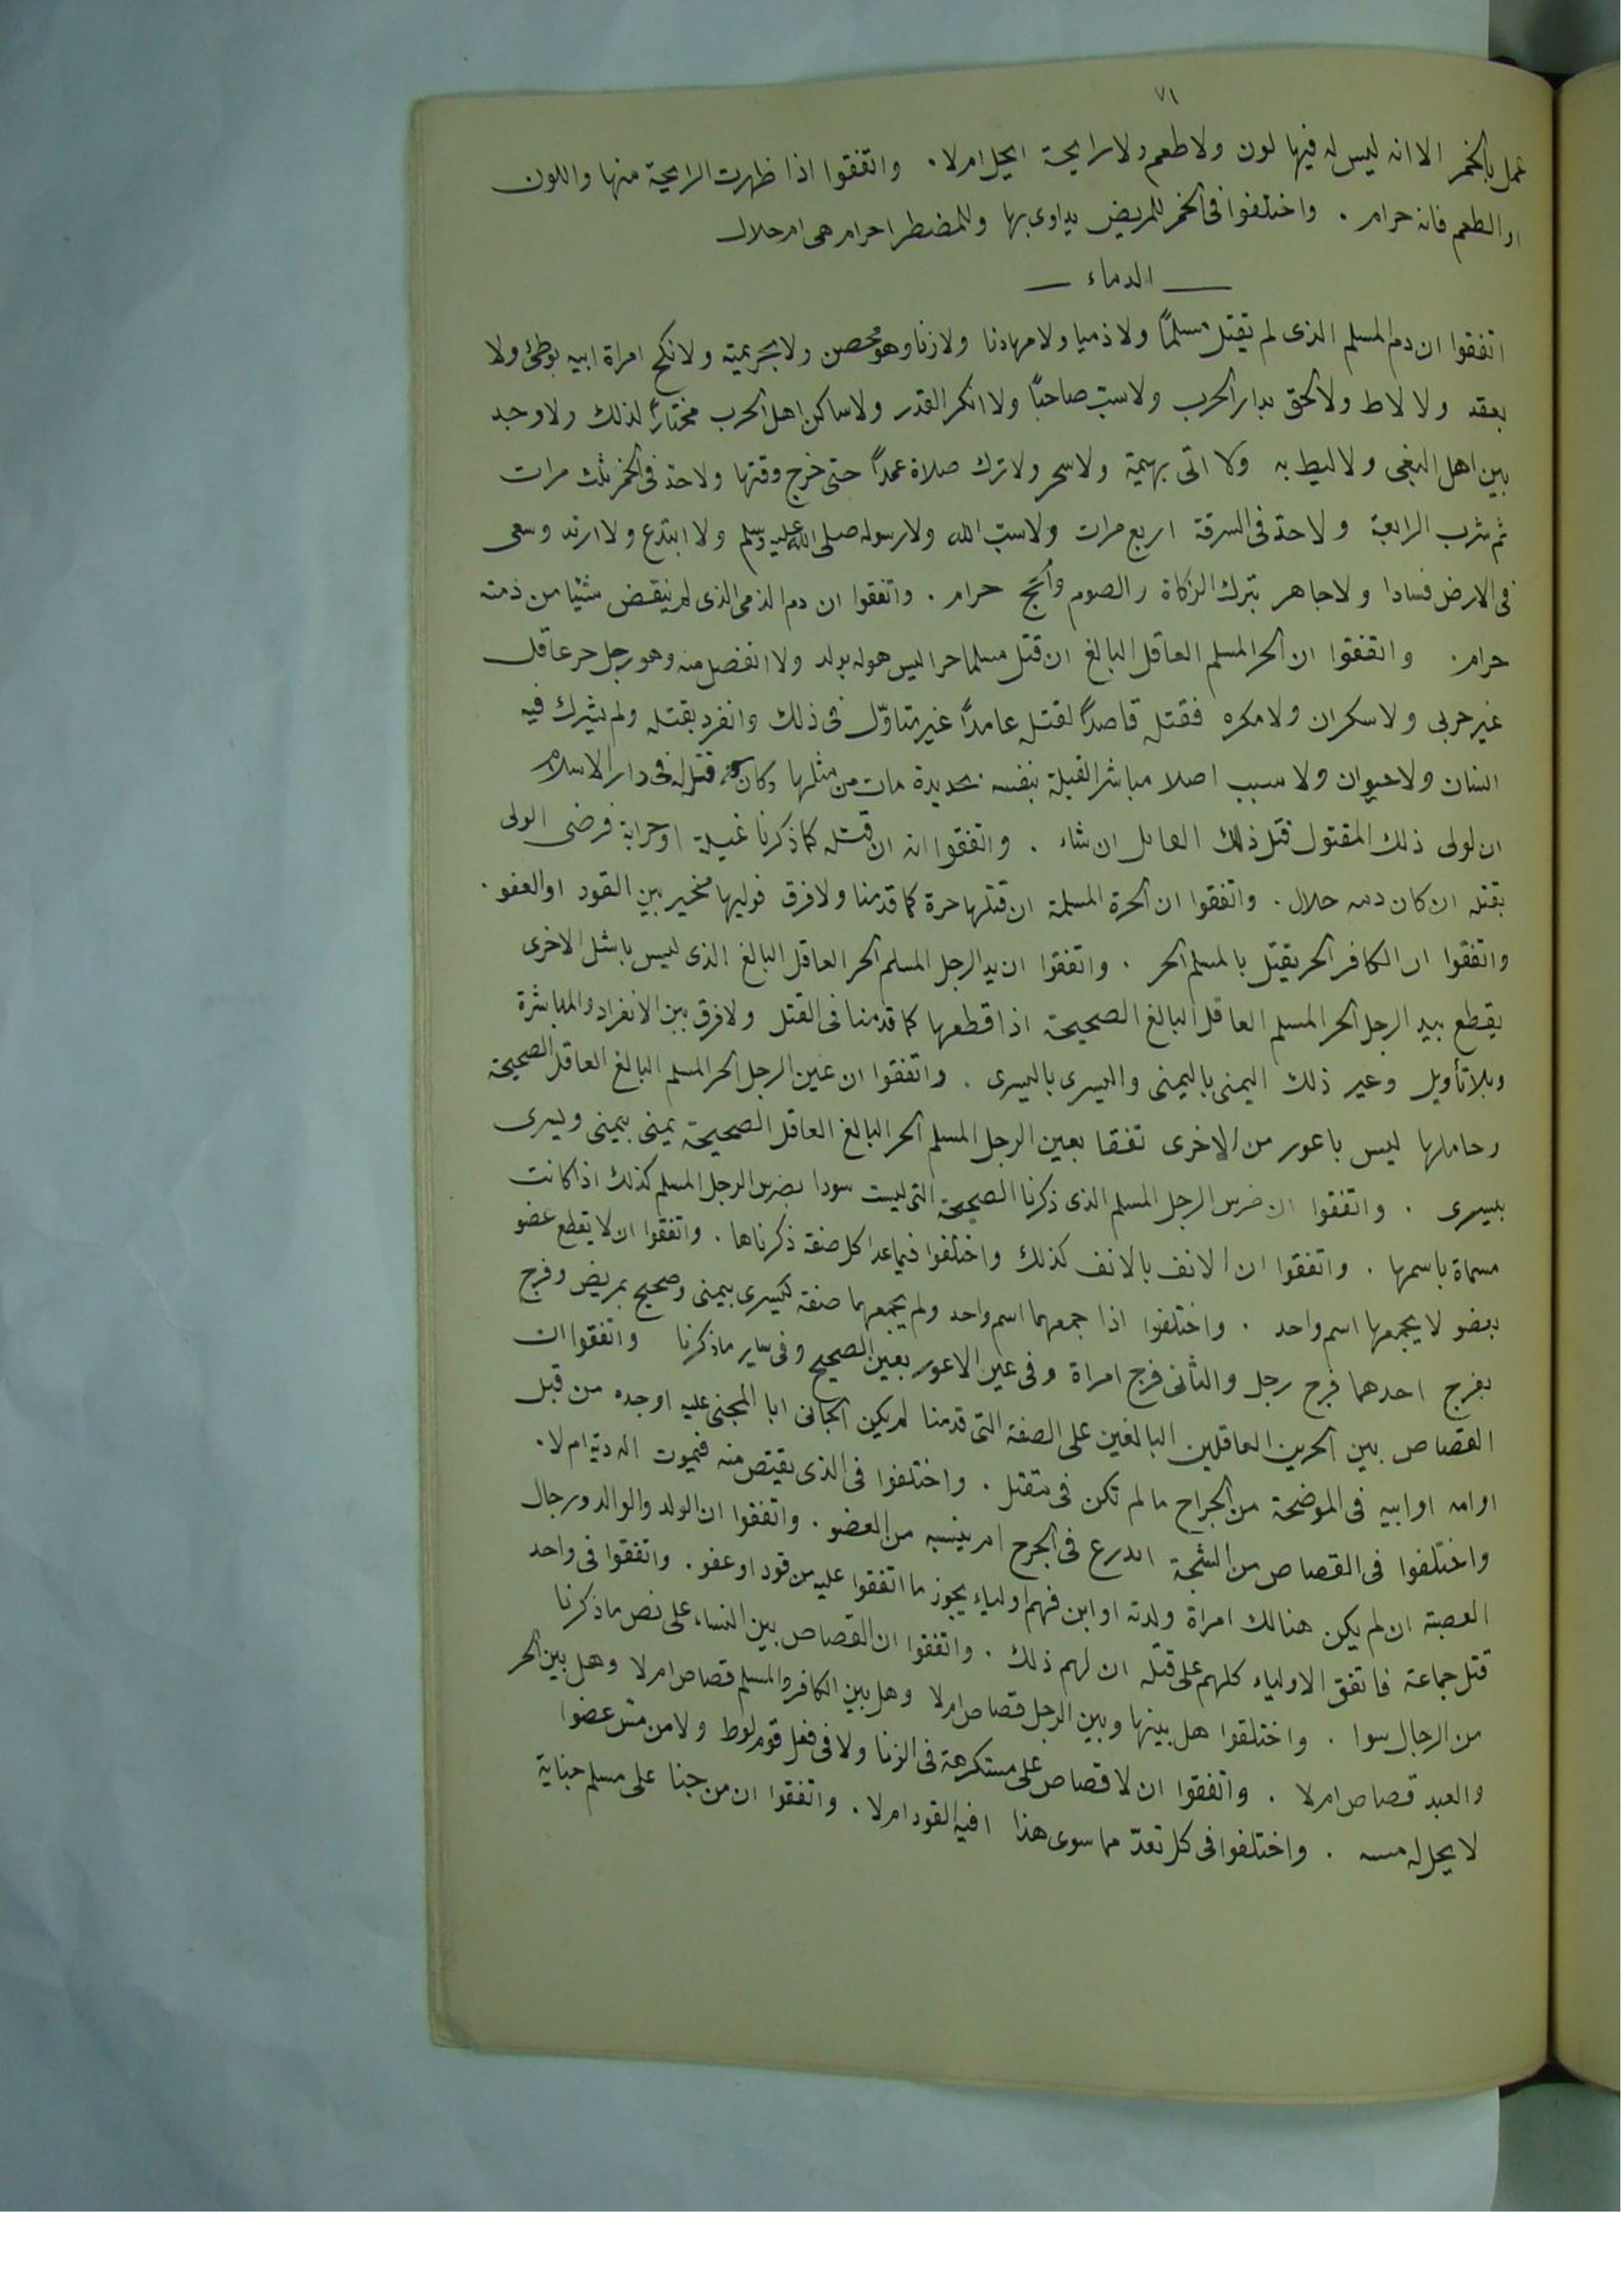 ٧١
عمل بالخمر الا انه ليس له فيها لون ولا طعم ولا رايحة ايحل ام لا . واتفقوا اذا ظهرت الرايحة منها واللون
او الطعم فانه حرام . واختلفوا فى الخمر للمريض يداوى بها وللمضطر احرام هى ام حلال
ـــ الدماء ـــ
اتفقوا ان دم المسلم الذى لم يقتل مسلمًا ولا ذميا ولا مهادنا ولا زنا وهو محصن ولا بحريمته ولا نكح امراة ابيه بوطئ ولا
بعقد ولا لاط ولا لحق بدار الحرب ولا سبّ صاحبًا ولا انكر القدر ولا ساكن اهل الحرب مختارًا لذلك ولا وجد
بين اهل البغى ولا ليط به ولا اتى بهيمة ولا سحر ولا ترك صلاة عمدًا حتى خرج وقتها ولا حدّ فى الخمر ثلث مرات
ثم شرب الرابعة ولا حدّ فى السرقة اربع مرات ولا سبّ الله ولا رسوله صلى الله عليه وسلم ولا ابتدع ولا ارتد وسعى
فى الارض فسادا ولا جاهر بترك الزكاة والصوم والحج حرام . واتفقوا ان دم الذمى الذى لم ينقض شيئا من ذمته
حرام . واتفقوا ان الحر المسلم العاقل البالغ ان قتل مسلما حرا ليس هو له بولد ولا انفصل منه وهو رجل حر عاقل
غير حربى ولا سكران ولا مكره فقتله قاصدًا لقتله عامدًا غير متاوّل فى ذلك وانفرد بقتله ولم يشرك فيه
انسان ولا حيوان ولا سبب اصلا مباشر القتلة بنفسه بحديدة مات من مثلها وكان قتله له فى دار الاسلام
ان لولى ذلك المقتول قتل ذلك القاتل ان شاء . واتفقوا انه ان قتله كما ذكرنا غيلة او حرابة فرضى الولى
بقتله ان كان دمه حلال . واتفقوا ان الحرة المسلمة ان قتلها حرة كما قدمنا ولا فرق فوليها مخير بين القود او العفو .
واتفقوا ان الكافر الحر يقتل بالمسلم الحر . واتفقوا ان يد الرجل المسلم الحر العاقل البالغ الذى ليس باشل الاخرى
يقطع بيد الرجل الحر المسلم العاقل البالغ الصحيحة اذا قطعها كما قدمنا فى القتل ولا فرق بين الانفراد والمباشرة
وبلا تأويل وغير ذلك اليمنى باليمنى واليسرى باليسرى . واتفقوا ان عين الرجل الحر المسلم البالغ العاقل الصحيحة
وحاملها ليس باعور من الاخرى تفقا بعين الرجل المسلم الحر البالغ العاقل الصحيحة يمنى بيمنى ويسرى
بيسرى . واتفقوا ان ضرس الرجل المسلم الذى ذكرنا الصحيحة التى ليست سودا بضرس الرجل المسلم كذلك اذا كانت
مسماة باسمها . واتفقوا ان الانف بالانف كذلك واختلفوا فيما عدا كل صفة ذكرناها . واتفقوا ان لا يقطع عضو
بعضو لا يجمعها اسم واحد . واختلفوا اذا جمعهما اسم واحد ولم يجمعهما صفة كيسرى بيمنى وصحيح بمريض وفرج
بفرج احدهما فرج رجل والثانى فرج امراة وفى عين الاعور بعين الصحيح وفى ساير ما ذكرنا واتفقوا ان
القصاص بين الحرين العاقلين البالغين على الصفة التى قدمنا لم يكن الجانى ابا المجنى عليه او جده من قبل
او امه او ابيه فى الموضحة من الجراح ما لم تكن فى مقتل . واختلفوا فى الذى يقتص منه فيموت اله دية ام لا .
واختلفوا فى القصاص من الشجة ابدرع فى الجرح ام بنسبه من العضو . واتفقوا ان الولد والوالد ورجال
العصبة ان لم يكن هنالك امراة ولدته او ابن فهم اولياء يجوز ما اتفقوا عليه من قود او عفو . واتفقوا فى واحد
قتل جماعة فاتفق الاولياء كلهم على قتله ان لهم ذلك . واتفقوا ان القصاص بين النساء على نص ما ذكرنا
من الرجال سوا . واختلفوا هل بينها وبين الرجل قصاص ام لا وهل بين الكافر والمسلم قصاص ام لا وهل بين الحر
والعبد قصاص ام لا . واتفقوا ان لا قصاص على مستكرهة فى الزنا ولا فى فعل قوم لوط ولا من مسّ عضوا
لا يحل له مسه . واختلفوا فى كل تعدّ مما سوى هذا افيه القود ام لا . واتفقوا ان من جنا على مسلم جناية